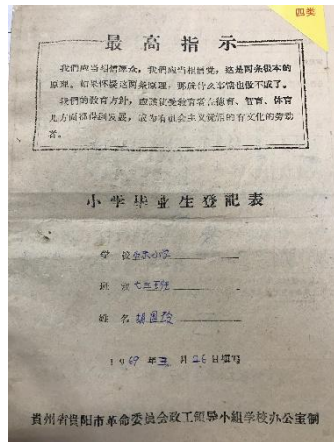 四类
最高指示
我们应当相信群众，我们应当相信党，这是两条根本的
原理。如果怀疑这两条原理，那就什么事情也做不成了。
我们的教育方针，应该使受教育者在德育、智育、体育
几方面都得到发展，成为有社会主义觉悟的有文化的劳动
者。
小学毕业生登记表
学校 小学
班 七年五班
姓名 胡
1969年 月26日填写
贵州省贵阳市革命委员会政工领导小组学校办公室制